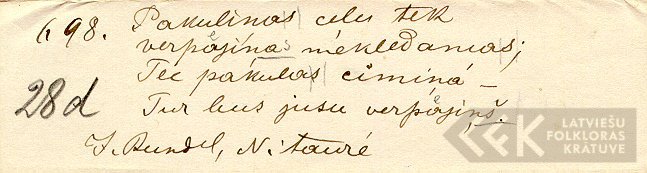 698. Pakulinas celu tek
verpājinas mekledamas;
Tec pakulas ciminá –
28d Tur bus jusu verpājiņš.
J. Rundel, N. tauré
LATVIEŠU
FOLKLORAS
KRĀTUVE